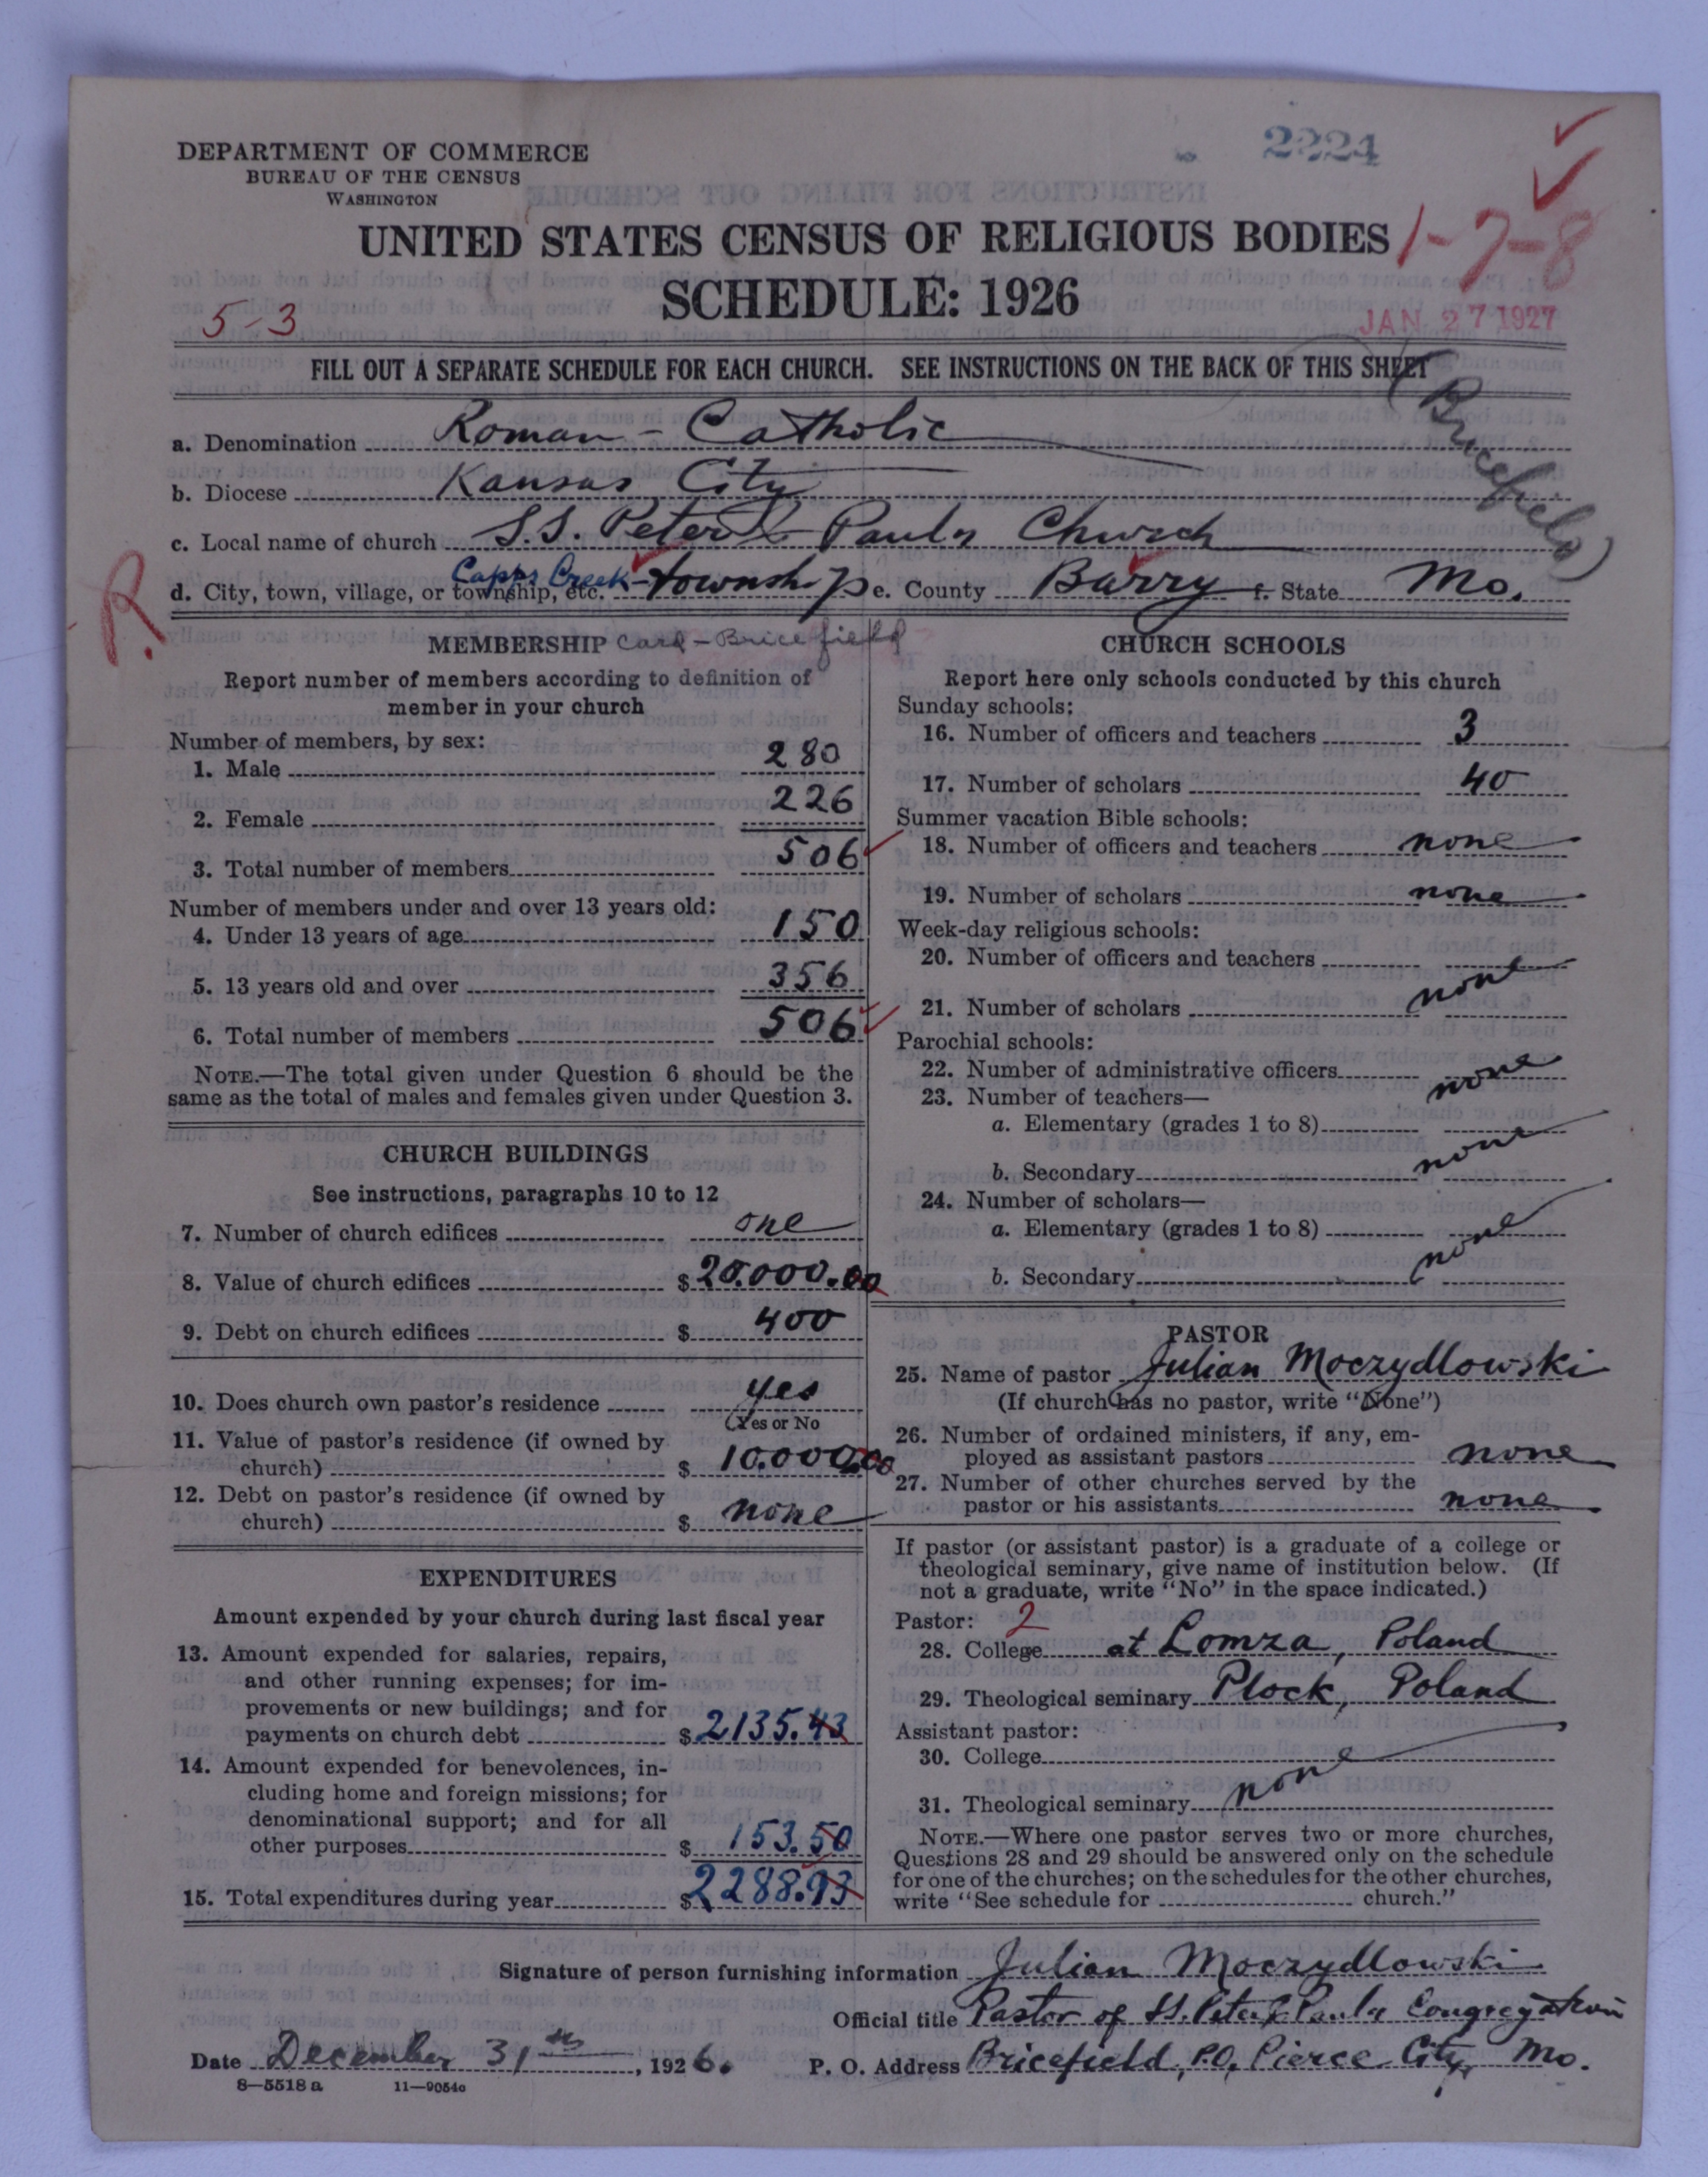 2224
DEPARTMENT OF COMMERCE
BUREAU OF THE CENSUS
WASHINGTON
UNITED STATES CENSUS OF RELIGIOUS BODIES
1-7-8
SCHEDULE: 1926
5-3
JAN 27 1927
FILL OUT A SEPARATE SCHEDULE FOR EACH CHURCH. SEE INSTRUCTIONS ON THE BACK OF THIS SHEET
(Bricefield)
a. Denomination Roman-Catholic
b. Diocese Kansas City
c. Local name of church S.S. Peter & Pauls Church
R.
d. City, town, village, or township, etc. Capps Creek-township e. County Barry f. State Mo.
MEMBERSHIP Card-Bricefield
Report number of members according to definition of
member in your church
Number of members, by sex:
1. Male 280
2. Female 226
3. Total number of members 506
Number of members under and over 13 years old:
4. Under 13 years of age 150
5. 13 years old and over 356
6. Total number of members 506
NOTE.—The total given under Question 6 should be the
same as the total of males and females given under Question 3.
CHURCH BUILDINGS
See instructions, paragraphs 10 to 12
7. Number of church edifices one
8. Value of church edifices $20.000.00
9. Debt on church edifices $ 400
10. Does church own pastor's residence yes
(Yes or No
11. Value of pastor's residence (if owned by
church) $ 10.000.00
12. Debt on pastor's residence (if owned by
church) $ none
EXPENDITURES
Amount expended by your church during last fiscal year
13. Amount expended for salaries, repairs,
and other running expenses; for im-
provements or new buildings; and for
payments on church debt $2135.43
14. Amount expended for benevolences, in-
cluding home and foreign missions; for
denominational support; and for all
other purposes $ 153.50
15. Total expenditures during year $2288.93
CHURCH SCHOOLS
Report here only schools conducted by this church
Sunday schools:
16. Number of officers and teachers 3
17. Number of scholars 40
Summer vacation Bible schools:
18. Number of officers and teachers none
19. Number of scholars none
Week-day religious schools:
20. Number of officers and teachers
none
21. Number of scholars
Parochial schools:
22. Number of administrative officers none
23. Number of teachers—
a. Elementary (grades 1 to 8)
none
b. Secondary
24. Number of scholars—
a. Elementary (grades 1 to 8)
none
b. Secondary
PASTOR
25. Name of pastor Julian Moczydlowski
(If church has no pastor, write "None")
26. Number of ordained ministers, if any, em-
ployed as assistant pastors none
27. Number of other churches served by the
pastor or his assistants none
If pastor (or assistant pastor) is a graduate of a college or
theological seminary, give name of institution below. (If
not a graduate, write "No" in the space indicated.)
Pastor: 2
28. College at Lomza, Poland
29. Theological seminary Plock, Poland
Assistant pastor:
30. College
none
31. Theological seminary
NOTE.—Where one pastor serves two or more churches,
Questions 28 and 29 should be answered only on the schedule
for one of the churches; on the schedules for the other churches,
write "See schedule for church."
Signature of person furnishing information Julian Moczydlowski
Official title Pastor of SS. Peter & Pauls Congregation
Date December 31st, 1926. P. O. Address Bricefield, P.O. Pierce City, Mo.
8—5518 a 11—9054a